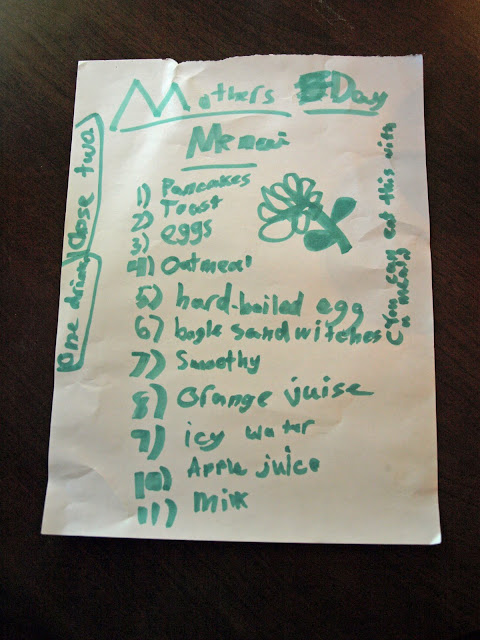 Mothers Day
Meneui
1) Pancakes
2) Toast
3) eggs
4) Oatmeal
5) hard-boiled egg
6) bagle sandwitches
7) Smoothy
8) Orange juise
9) icy water
10) Apple juice
11) Milk
One
Close two
(You can eat this with
a meal)